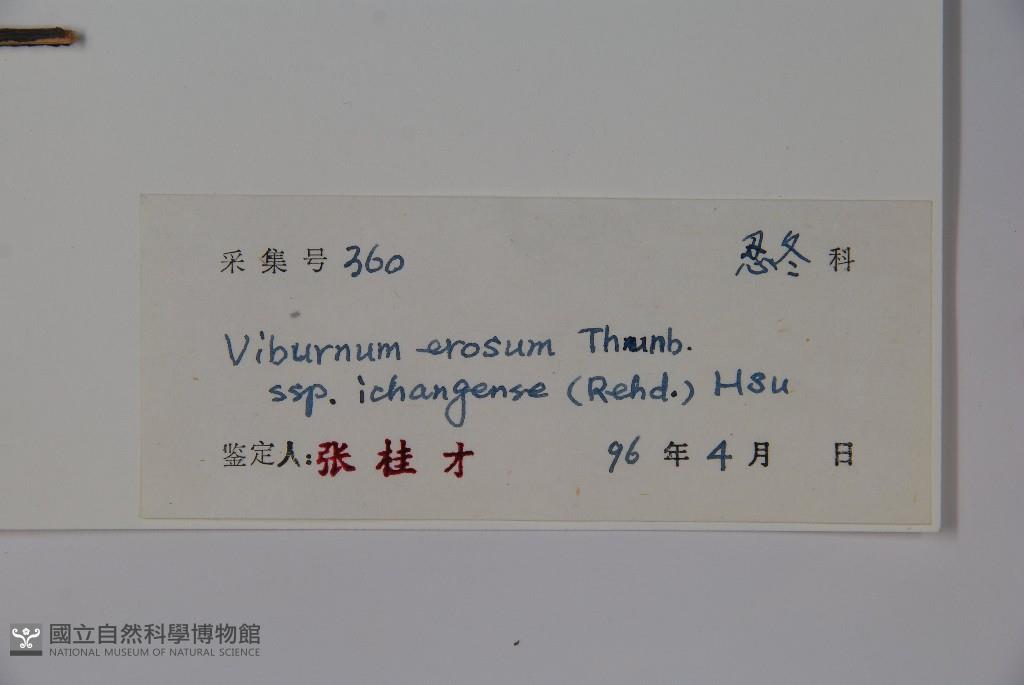 采集号 360 忍冬 科
Viburnum erosum Thunb.
ssp. ichangense (Rehd.) Hsu
鉴定人:张桂才 96 年 4 月 日
國立自然科學博物館
NATIONAL MUSEUM OF NATURAL SCIENCE